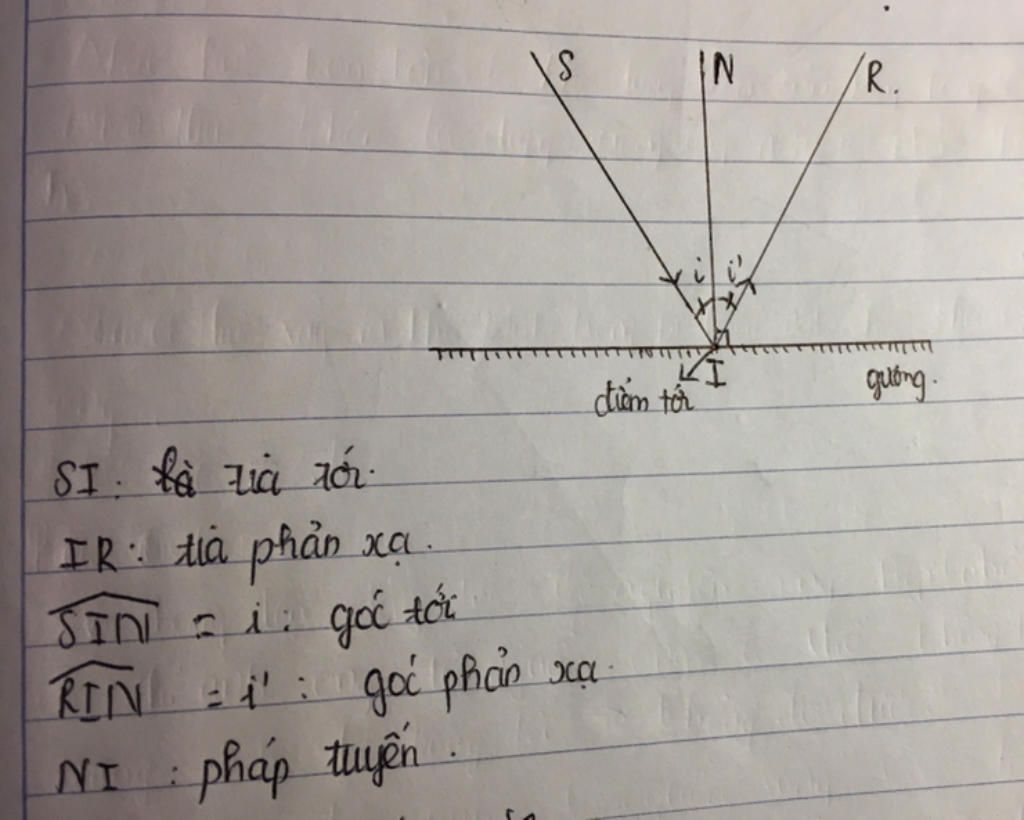 S N R.
i i'
I
điểm tới gương.
SI: là tia tới.
IR: tia phản xạ.
SIN = i: góc tới
RIN = i': góc phản xạ.
NI: pháp tuyến.